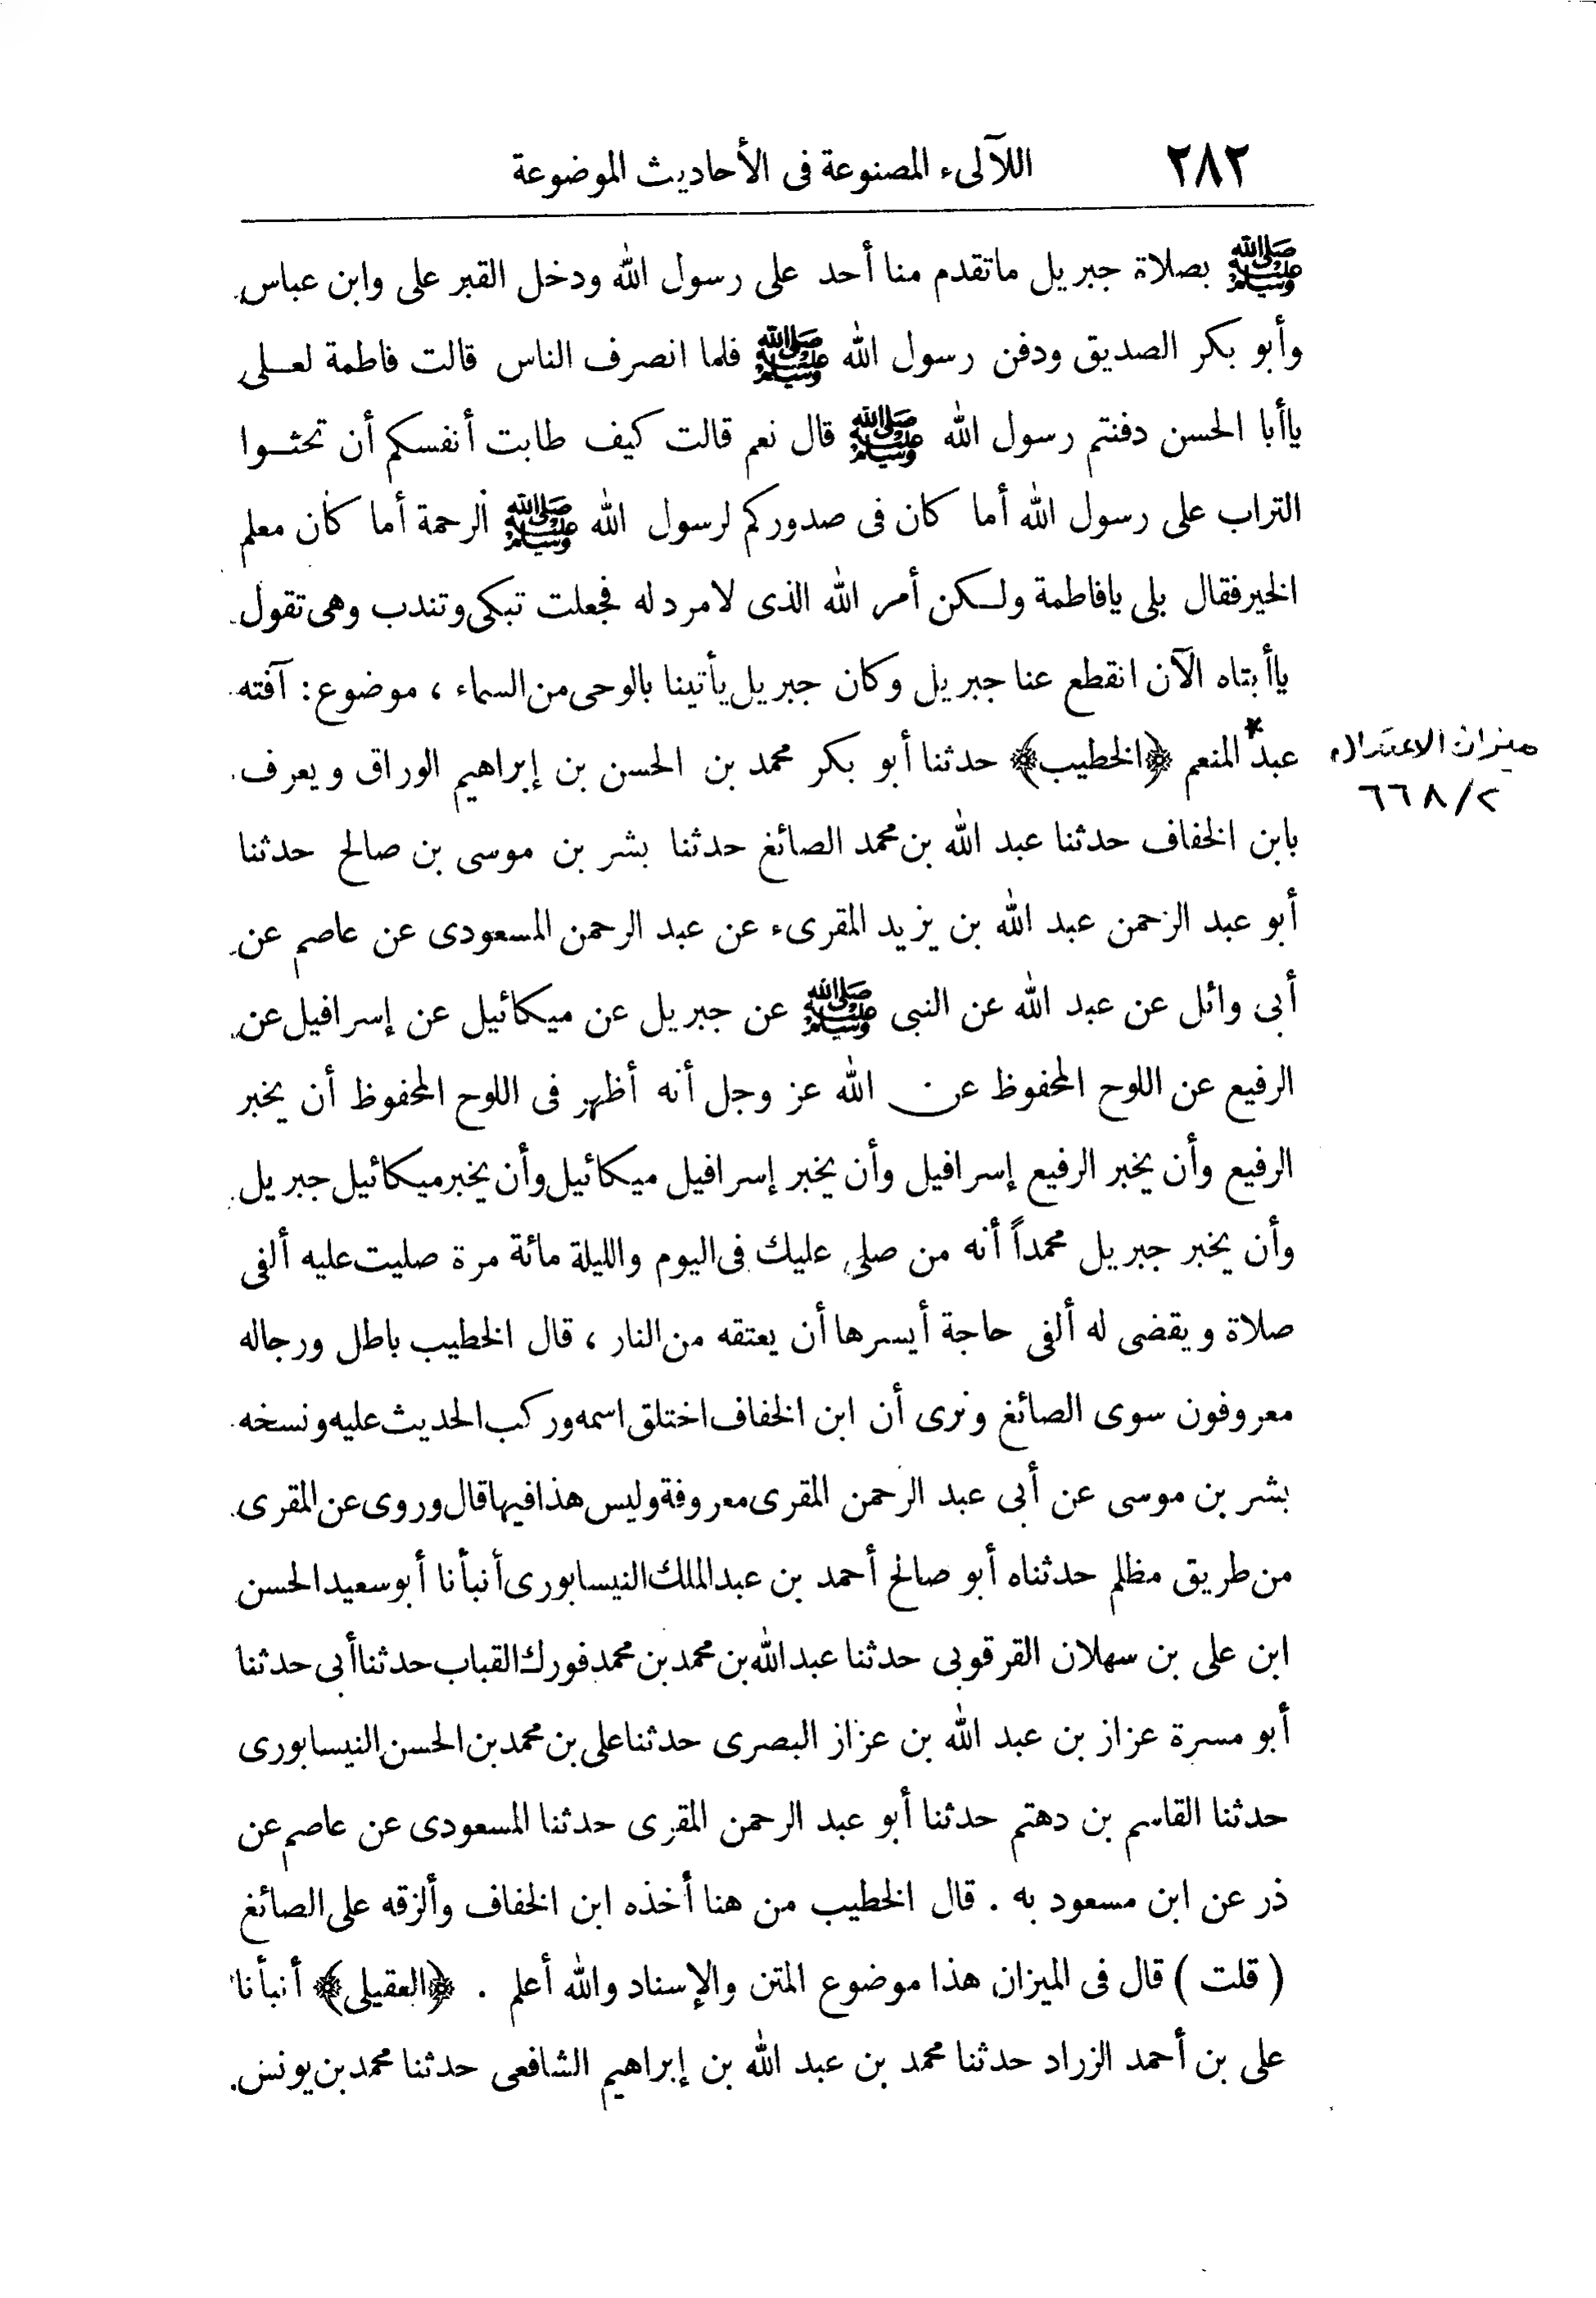 ٢٨٢ اللآلىء المصنوعة فى الأحاديث الموضوعة
ﷺ بصلاة جبريل ماتقدم منا أحد على رسول الله ودخل القبر على وابن عباس
وأبو بكر الصديق ودفن رسول الله ﷺ فلما انصرف الناس قالت فاطمة لعــلى
ياأبا الحسن دفنتم رسول الله ﷺ قال نعم قالت كيف طابت أنفسكم أن تحثــوا
التراب على رسول الله أما كان فى صدوركم لرسول الله ﷺ الرحمة أما كان معلم
الخير فقال بلى يافاطمة ولــكن أمر الله الذى لامرد له فجعلت تبكى وتندب وهى تقول
ياأبتاه الآن انقطع عنا جبريل وكان جبريل يأتينا بالوحى من السماء ، موضوع : آفته
عبد* المنعم ﴿الخطيب﴾ حدثنا أبو بكر محمد بن الحسن بن إبراهيم الوراق ويعرف
ميزان الاعتدال
٢/٦٦٨
بابن الخفاف حدثنا عبد الله بن محمد الصائغ حدثنا بشر بن موسى بن صالح حدثنا
أبو عبد الرحمن عبد الله بن يزيد المقرىء عن عبد الرحمن المسعودى عن عاصم عن
أبى وائل عن عبد الله عن النبى ﷺ عن جبريل عن ميكائيل عن إسرافيل عن
الرفيع عن اللوح المحفوظ عن الله عز وجل أنه أظهر فى اللوح المحفوظ أن يخبر
الرفيع وأن يخبر الرفيع إسرافيل وأن يخبر إسرافيل ميكائيل وأن يخبر ميكائيل جبريل
وأن يخبر جبريل محمداً أنه من صلى عليك فى اليوم والليلة مائة مرة صليت عليه ألفى
صلاة ويقضى له ألفى حاجة أيسرها أن يعتقه من النار ، قال الخطيب باطل ورجاله
معروفون سوى الصائغ ونرى أن ابن الخفاف اختلق اسمه وركب الحديث عليه ونسخه
بشر بن موسى عن أبى عبد الرحمن المقرى معروفة وليس هذا فيها قال وروى عن المقرى
من طريق مظلم حدثناه أبو صالح أحمد بن عبد الملك النيسابورى أنبأنا أبو سعيد الحسن
ابن على بن سهلان القرقوبى حدثنا عبد الله بن محمد بن محمد فورك القباب حدثنا أبى حدثنا
أبو مسرة عزاز بن عبد الله بن عزاز البصرى حدثنا على بن محمد بن الحسن النيسابورى
حدثنا القاسم بن دهتم حدثنا أبو عبد الرحمن المقرى حدثنا المسعودى عن عاصم عن
ذر عن ابن مسعود به . قال الخطيب من هنا أخذه ابن الخفاف وألزقه على الصائغ
( قلت ) قال فى الميزان هذا موضوع المتن والإسناد والله أعلم . ﴿العقيلى﴾ أنبأنا
على بن أحمد الزراد حدثنا محمد بن عبد الله بن إبراهيم الشافعى حدثنا محمد بن يونس